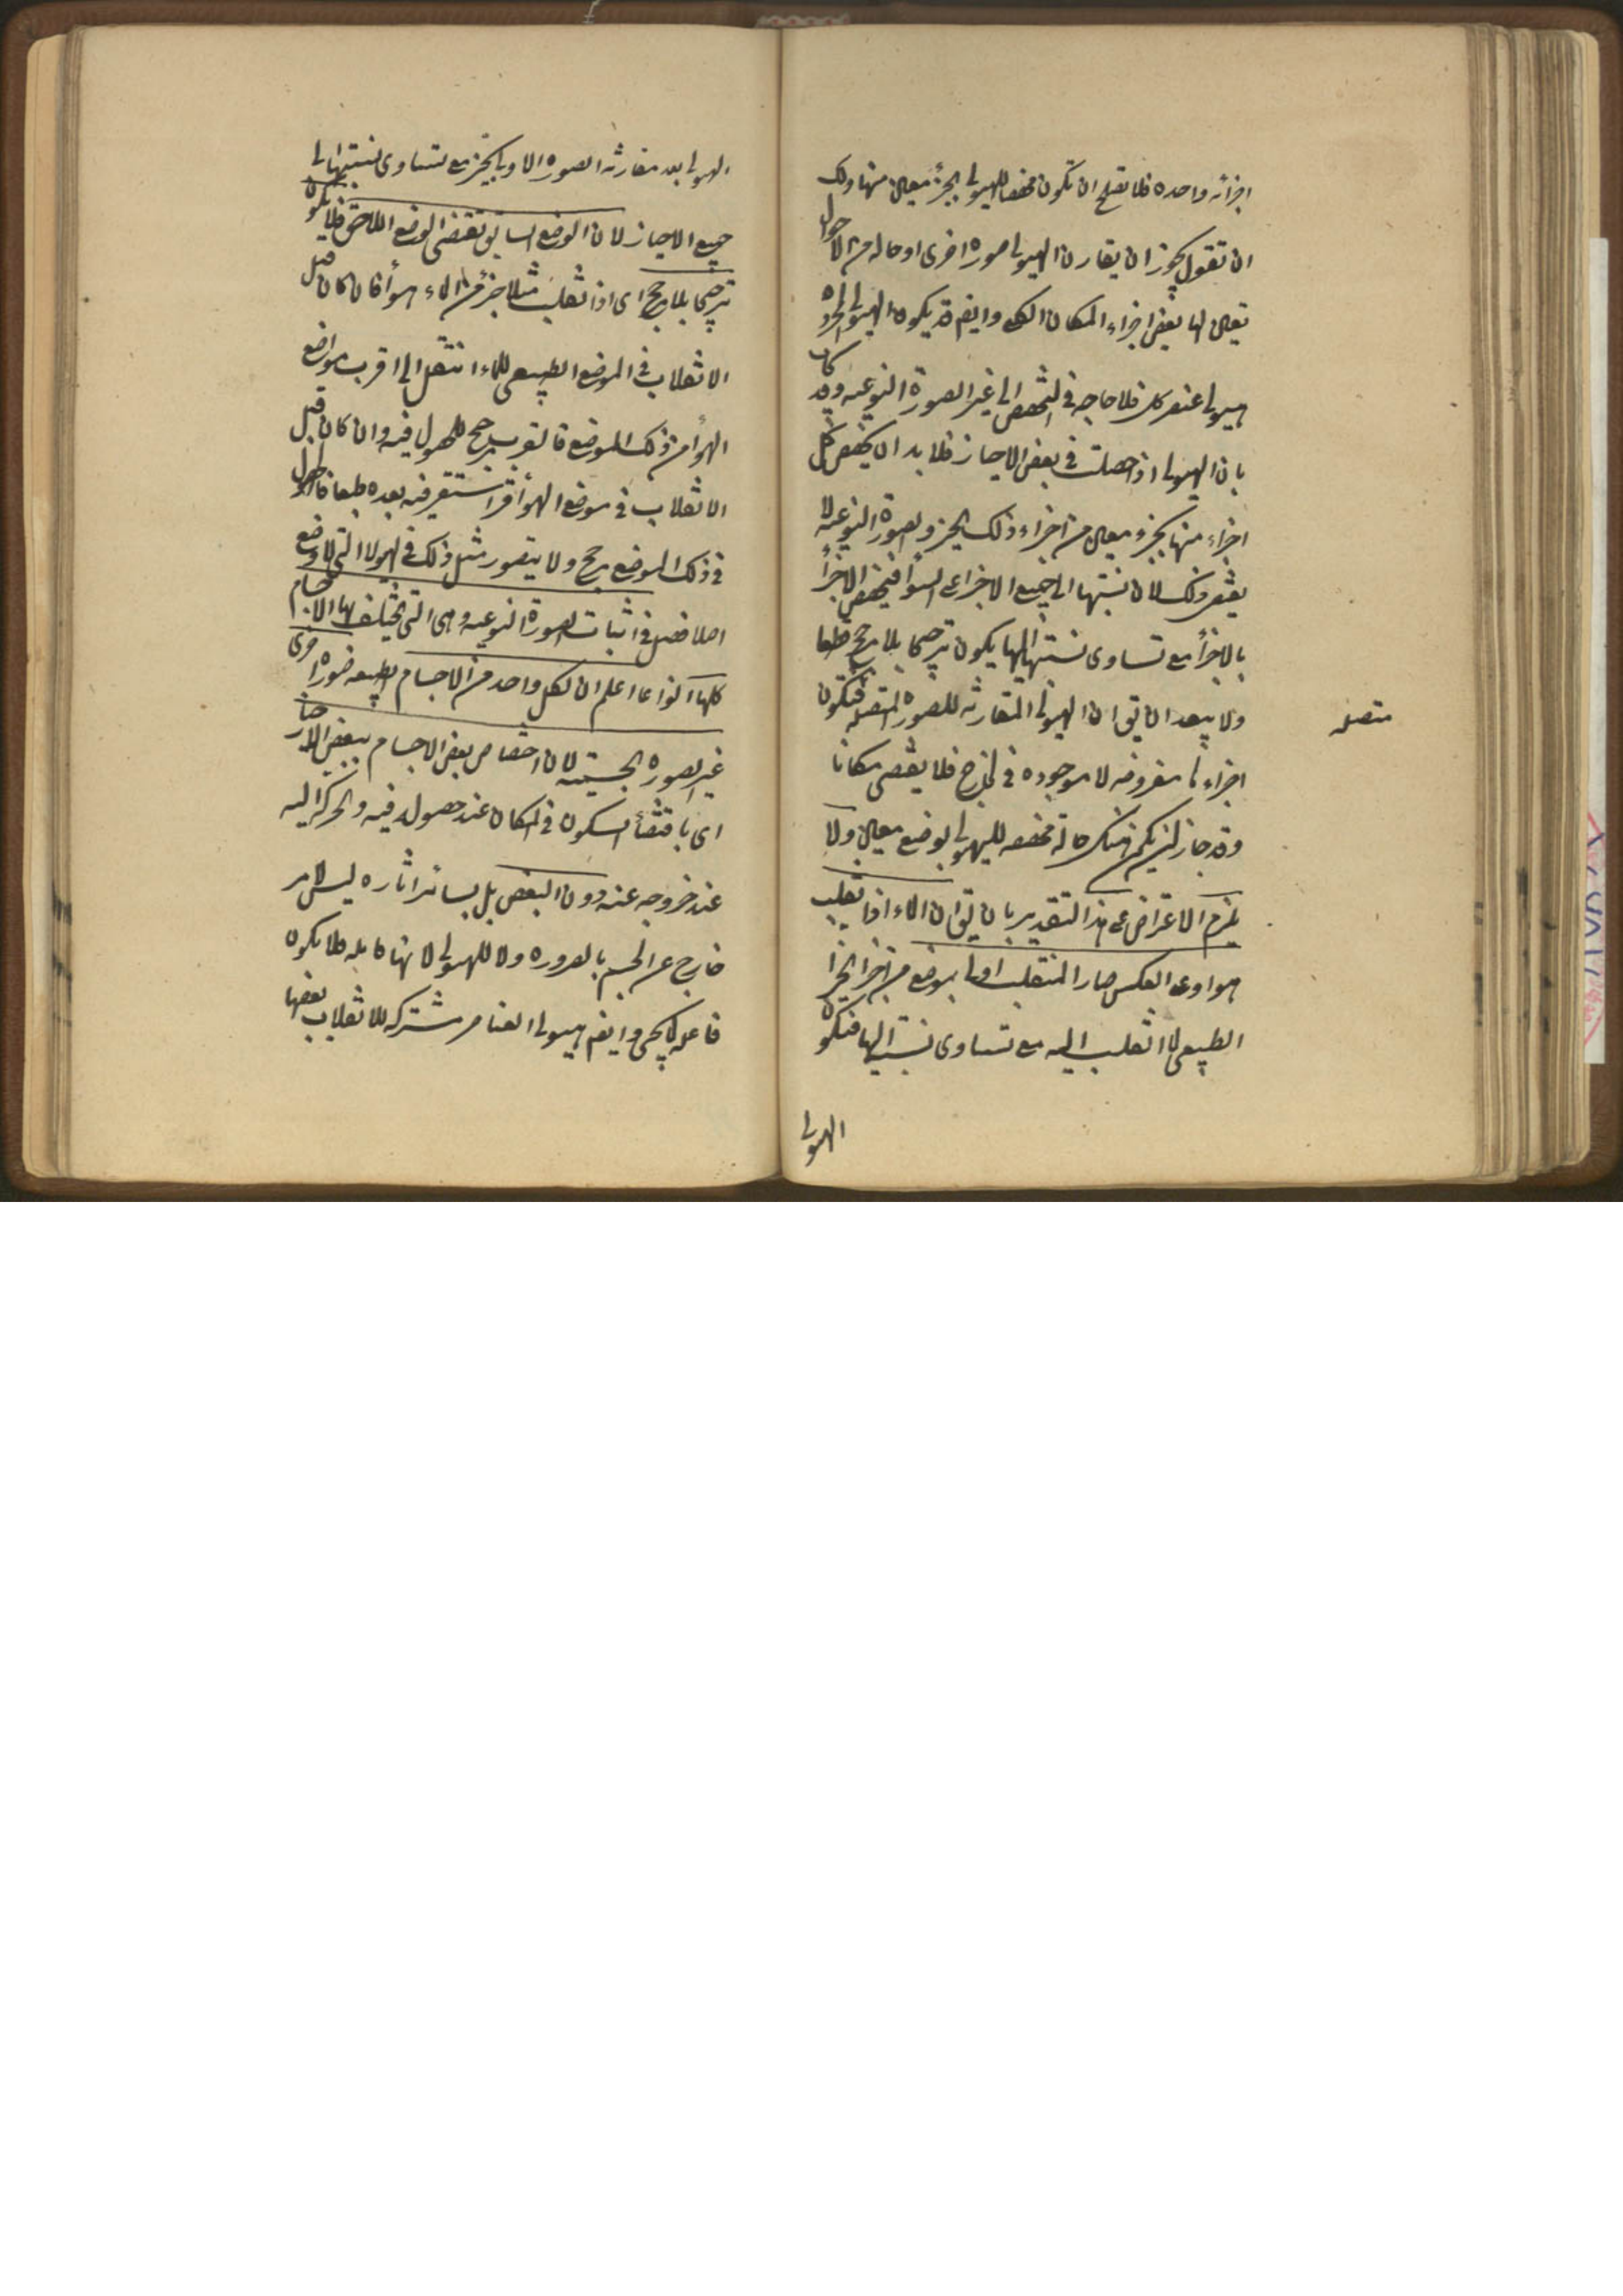 اجزائه واحدة فلا يصلح ان تكون مخصصا للهيولى بجزء معين منها ولك
ان تقول يجوز ان يقارن الهيولى صورة اخرى او حالة من الاحوال
تعين لها بعض اجزاء المكان الكلى وايضم قد يكون الهيولى المجردة
هيولى عنصر كلى فلا حاجة فى التخصص الى غير الصورة النوعية وقد يجاب
بان الهيولى اذا حصلت فى بعض الاحياز فلا بد ان يخصص كل
اجزاء منها بجزء معين من اجزاء ذلك الحيز والصورة النوعية لا
يقتضى ذلك لان نسبتها الى جميع الاجزاء على السواء فتخصص الاجزاء
بالاجزاء مع تساوى نسبتها اليها يكون ترجيحا بلا مرجح قطعا
ولا يبعد ان يق ان الهيولى المقارنة للصورة المتصلة فتكون
متصلة
اجزاءها مفروضة لا موجودة فى الخارج فلا يقتضى مكانا
وقد جاز ان يكون هناك حالة مخصصة للهيولى بوضع معين ولا
يلزم الاعتراض على هذا التقدير بان يق ان الماء اذا انقلب
هواء او على العكس صار المنقلب اولى بموضع من اجزاء الحيز
الطبيعى لما انقلب اليه مع تساوى نسبته اليها فتكون
الهيولى
الهيولى بعد مقارنة الصورة اولى بحيز مع تساوى نسبتها الى
جميع الاحياز لان الوضع السابق يقتضى الوضع اللاحق فلا يكون
ترجيحا بلا مرجح اى اذا انقلب مثلا جزء من الماء هواء فان كان قبل
الانقلاب فى الموضع الطبيعى للماء انتقل الى اقرب مواضع
الهواء من ذلك الموضع فالقرب مرجح للحصول فيه وان كان قبل
الانقلاب فى موضع الهواء قسرا استقر فيه بعده طبعا فالحصول
فى ذلك الموضع مرجح ولا يتصور مثل ذلك فى الهيولا التى لا وضع
اصلا فصل فى اثبات الصورة النوعية وهى التى يختلف بها الاجسام
كلها انواعا اعلم ان لكل واحد من الاجسام الطبيعة صورة اخرى
غير الصورة الجسمية لان اختصاص بعض الاجسام ببعض الاحياز
اى باقتضاء السكون فى المكان عند حصوله فيه والحركة اليه
عند خروجه عنه دون البعض بل بسائر اثاره ليس لامر
خارج عن الجسم بالضرورة ولا للهيولى لانها قابلة فلا يكون
فاعلة كما يجى وايضم هيولى العناصر مشتركة للانقلاب بعضها